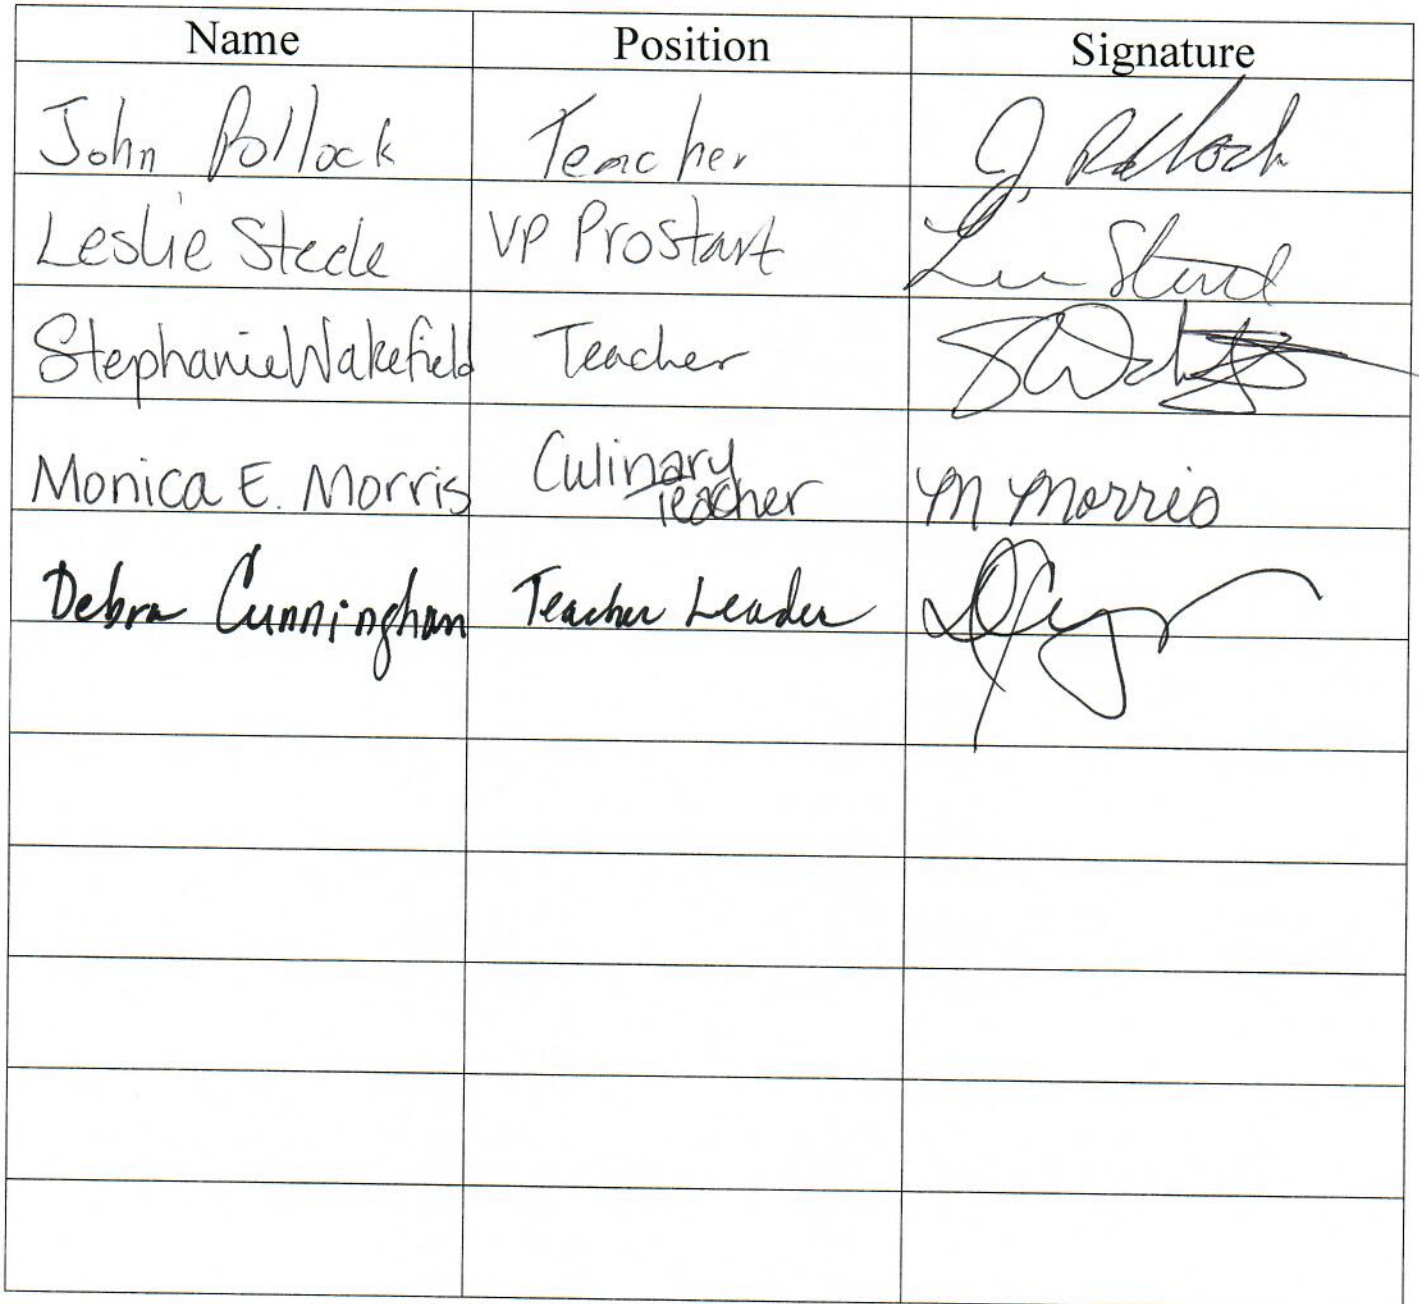 Name Position Signature
John Pollock Teacher J. Pollock
Leslie Steele VP Prostart
Stephanie Wakefield Teacher
Monica E. Morris Culinary Teacher M Morris
Debra Cunningham Teacher Leader